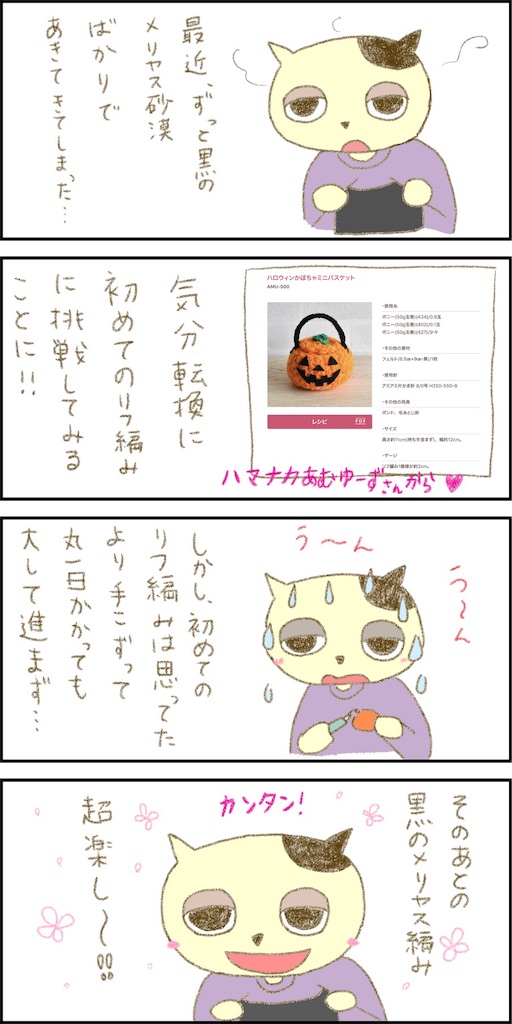 最近、ずっと黒の
メリヤス砂漠
ばかりで
あきてきてしまった…
気分転換に
初めてのリフ編み
に挑戦してみる
ことに!!
ハロウィンかぼちゃミニバスケット
AMU-500
レシピ
PDF
・使用糸
ボニー(50g玉巻)(434)/0.9玉
ボニー(50g玉巻)(402)/0.1玉
ボニー(50g玉巻)(427)/少々
・その他の資材
フェルト(6.5cm×9cm・黒)/1枚
・使用針
アミアミ片かぎ針 8/0号 H250-550-8
・その他の用具
ボンド、毛糸とじ針
・サイズ
高さ約11cm(持ち手含まず)、幅約12cm。
・ゲージ
リフ編み1模様が約3cm。
ハマナカあむゆーずさんから♥
う〜ん
う〜ん
しかし、初めての
リフ編みは思ってた
より手こずって
丸一日かかっても
大して進まず…
カンタン!
そのあとの
黒のメリヤス編み
超楽し〜!!